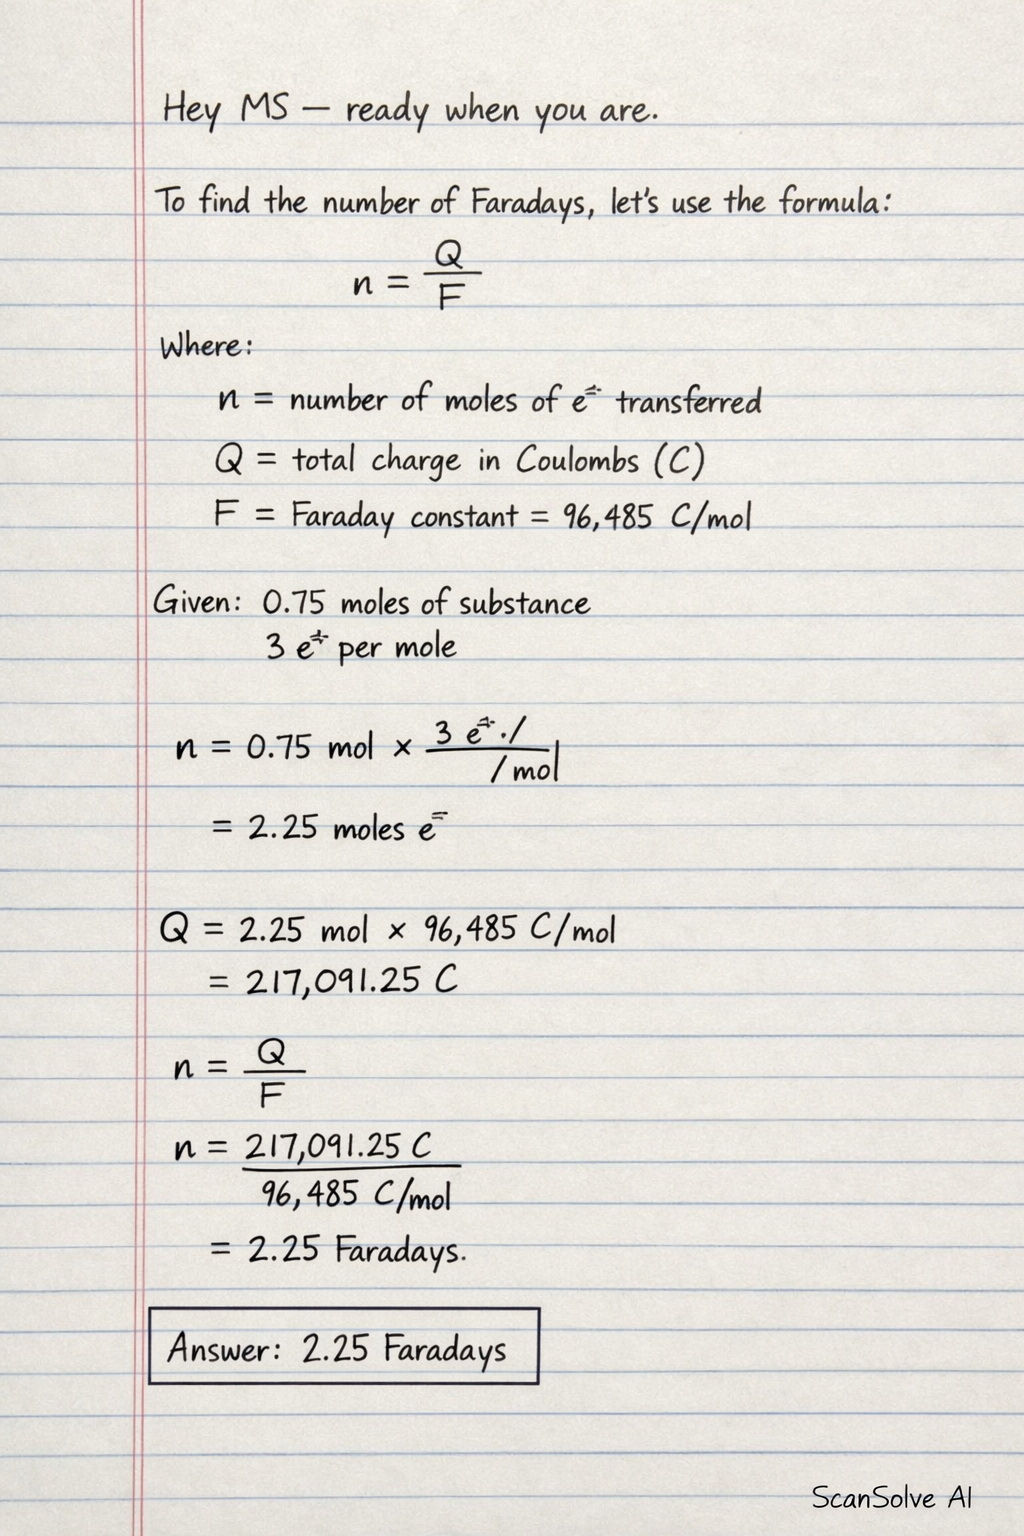 Hey MS — ready when you are.
To find the number of Faradays, let's use the formula:
n = Q/F
Where:
n = number of moles of e⁻ transferred
Q = total charge in Coulombs (C)
F = Faraday constant = 96,485 C/mol
Given: 0.75 moles of substance
3 e⁻ per mole
n = 0.75 mol × 3 e⁻ ·/ / /mol
= 2.25 moles e⁻
Q = 2.25 mol × 96,485 C/mol
= 217,091.25 C
n = Q/F
n = 217,091.25 C / 96,485 C/mol
= 2.25 Faradays.
Answer: 2.25 Faradays
ScanSolve AI